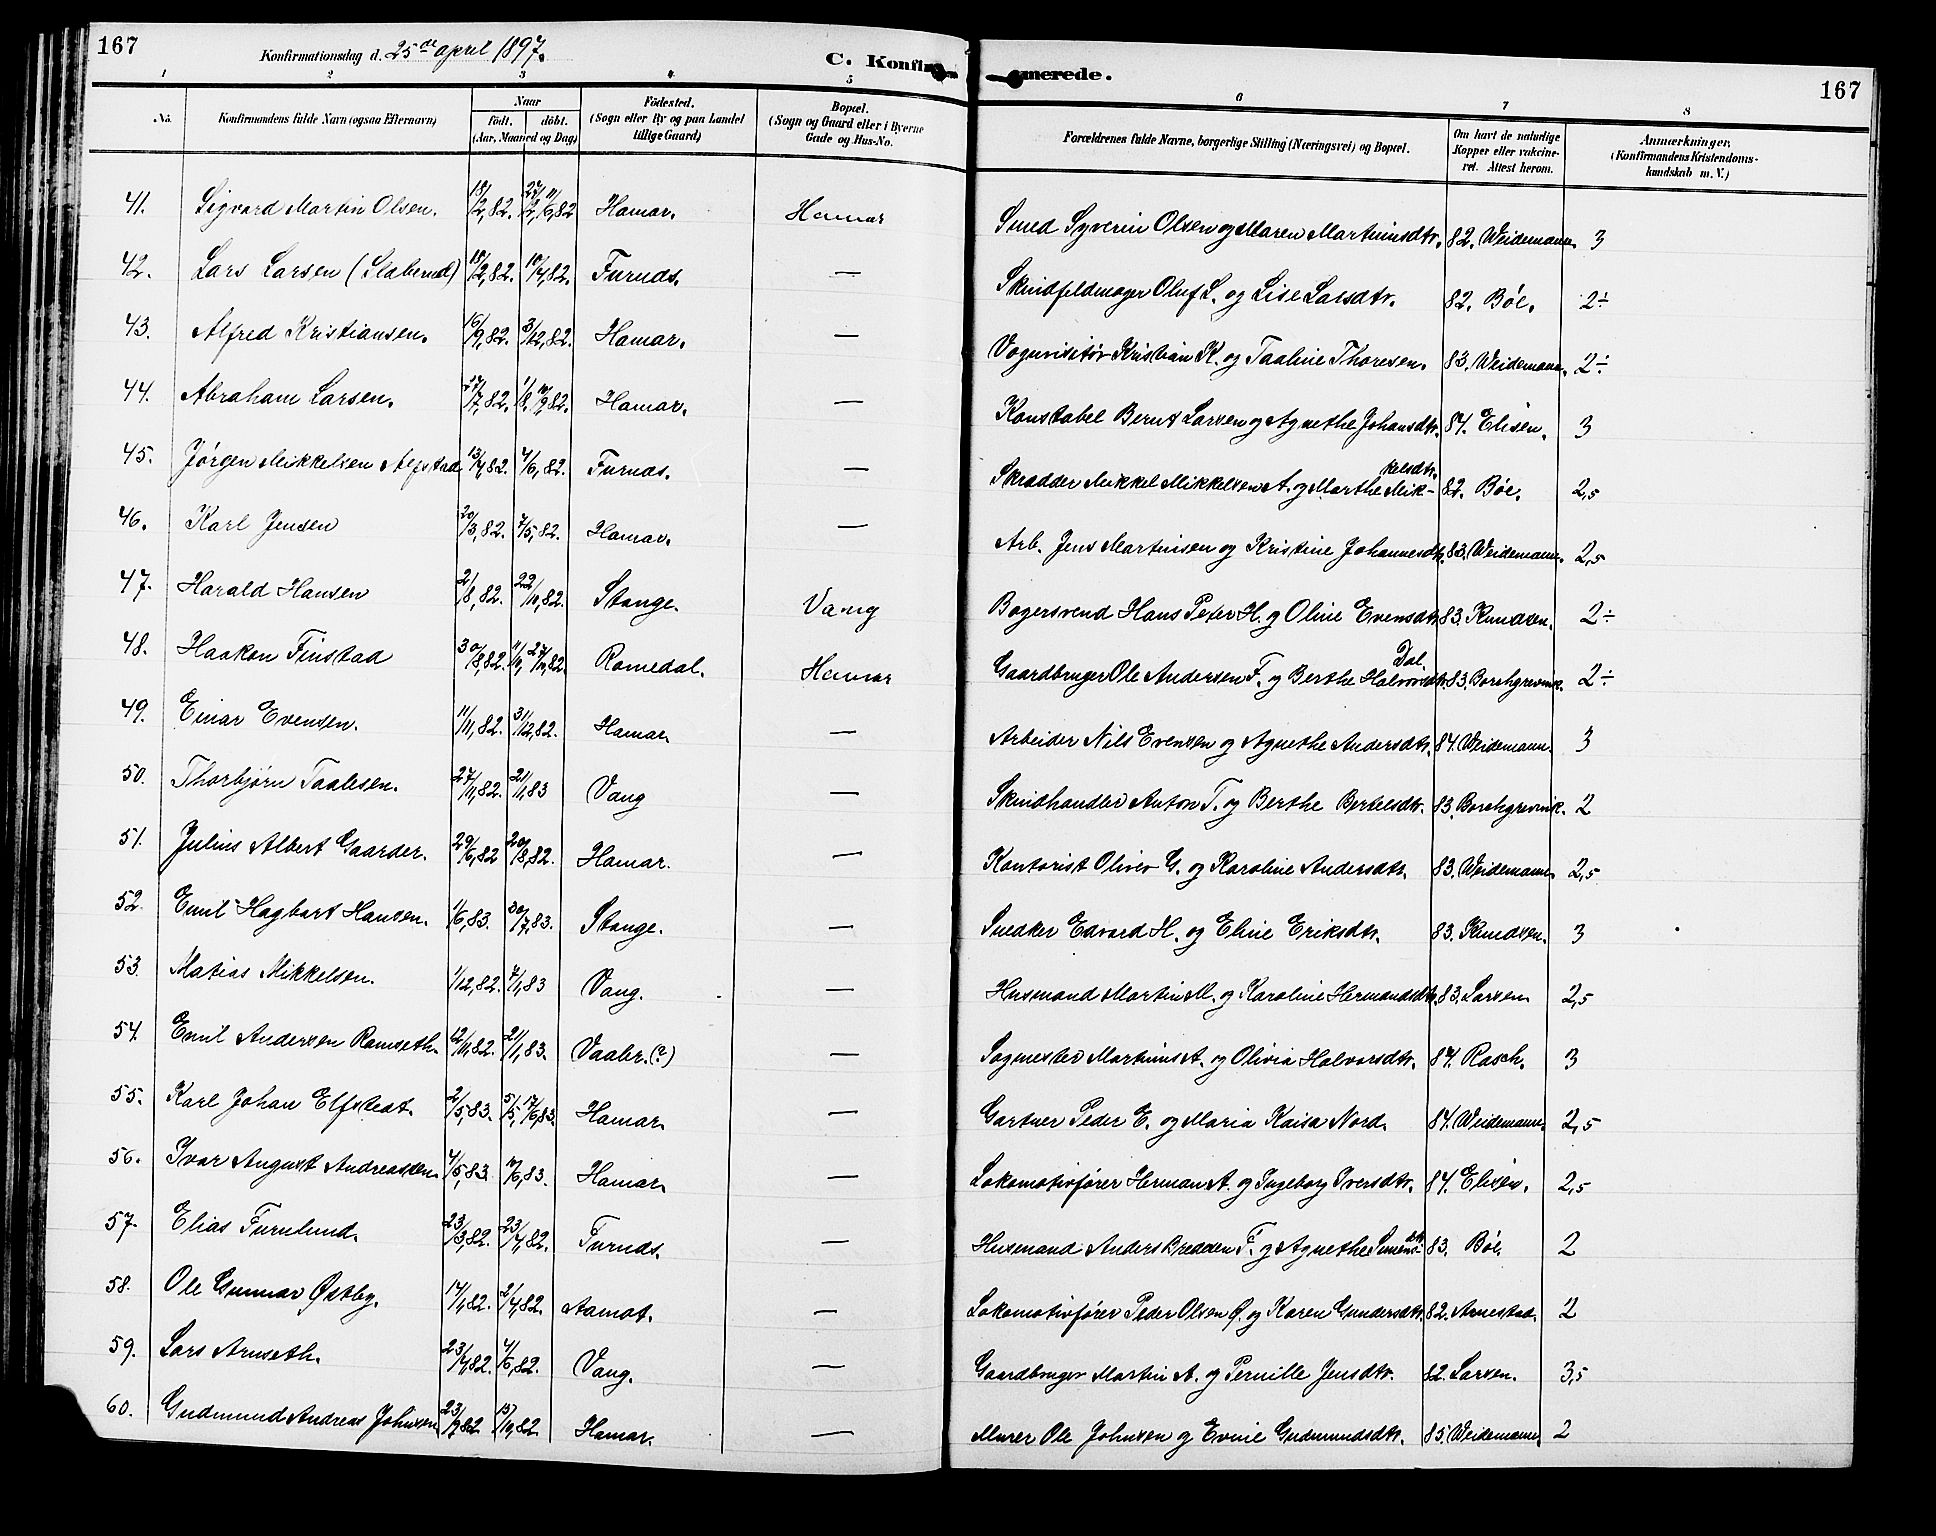 167
Konfirmationsdag d. 25de april 1897.
C. Konfir merede.
167
1 2 3 4 5 6 7 8
No. Konfirmandens fulde Navn (ogsaa Efternavn) Naar født. døbt. (Aar, Maaned og Dag) Fødested. (Sogn eller By og paa Landet tillige Gaard) Bopæl. (Sogn og Gaard eller i Byerne Gade og Hus-No. Forældrenes fulde Navne, borgerlige Stilling (Næringsvei) og Bopæl. Om havt de naturlige Kopper eller vakcineret. Attest herom. Anmærkninger, (Konfirmandens Kristendomskundskab m. V.)
41. Sigvard Martin Olsen. 18/2,82. 27/2, 11/6,82 Hamar. Hamar Smed Syverin Olsen og Maren Martinusdtr. 82. Weidemann. 3
42. Lars Larsen (Slaberud) 18/2,82. 10/4,82. Furnds. — Skindfeldmager Oluf L. og Lise Larsdtr. 82. Bøe. 2÷
43. Alfred Kristiansen. 16/9,82. 3/12,82. Hamar. — Vognvisitør Kristian K. og Taaline Thoresen. 83. Weidemann. 2÷
44. Abraham Larsen. /7,82. 1/8, /9,82. Hamar. — Konstabel Bernt Larsen og Agnethe Johansdtr. 84. Elisen. 3
45. Jørgen Mikkelsen Alfstad 13/4,82. 4/6,82. Furnds. — Skradder Mikkel Mikkelsen A. og Marthe Mikkelsdtr. 82. Bøe. 2,5
46. Karl Jensen 20/3,82. 7/5,82. Hamar. — Arb. Jens Martinsen og Kristine Johannesdtr. 83. Weidemann. 2,5
47. Harald Hansen 2/8,82. 22/10,82. Stange. Vang Bagersvend Hans Peter H. og Oline Evensdtr. 83. Knudsen. 2÷
48. Haakon Finstad 30/8,82. 11/9, 27/10,82. Romedal. Hamar Gaardbruger Ole Andersen F. og Berthe Halvorsdtr. Dal. 83. Borchgrevink. 2÷
49. Einar Evensen. 11/11,82. 31/12,82. Hamar. — Arbeider Nils Evensen og Agnethe Andersdtr. 84. Weidemann. 3
50. Thorbjørn Taalesen. 27/11,82. 21/1,83 Vang — Skindhandler Anton T. og Berthe Bertelsdtr. 83. Borchgrevink. 2
51. Julius Albert Gaarder. 29/6,82 20/8,82. Hamar. — Kontorist Oliver G. og Karoline Andersdtr. 83. Weidemann. 2,5
52. Emil Hagbart Hansen. 1/6,83. 30/7,83. Stange. — Snedker Edvard H. og Eline Eriksdtr. 83. Knudsen. 3
53. Matias Mikkelsen. 1/12,82. 7/1,83 Vang. — Husmand Martin M. og Karoline Hermandsdtr. 83. Larsen. 2,5
54. Emil Andersen Ramseth. 12/11,82. 21/1,83. Vaaler. (?) — Sagmester Martinus A. og Olivia Halvorsdtr. 84. Rasch. 3
55. Karl Johan Elfstedt. 2/5,83. 5/5, 17/6,83. Hamar. — Gartner Peder E. og Maria Kaisa Nord. 84. Weidemann. 2,5
56. Ivar August Andreassen. 4/5,83. /6,83. Hamar. — Lokomotivfører Herman A. og Ingeborg Iversdtr. 84. Elisen. 2,5
57. Elias Furulund. 23/3,82. 23/4,82. Furnds. — Husmand Anders Bredesen F. og Agnethe Simensdtr. 83. Bøe 2
58. Ole Gunnar Østby. 17/1,82. 2/4,82. Aamot. — Lokomotivfører Peder Olsen Ø. og Karen Gundersdtr. 82. Arnestad. 2
59. Lars Arnseth. 23/4,82. 4/6,82. Vang. — Gaardbruger Martin A. og Pernille Jensdtr. 82. Larsen. 3,5
60. Gudmund Andreas Johnsen 23/9,82 15/10,82. Hamar. — Murer Ole Johnsen og Evine Gudmundsdtr. 85. Weidemann. 2